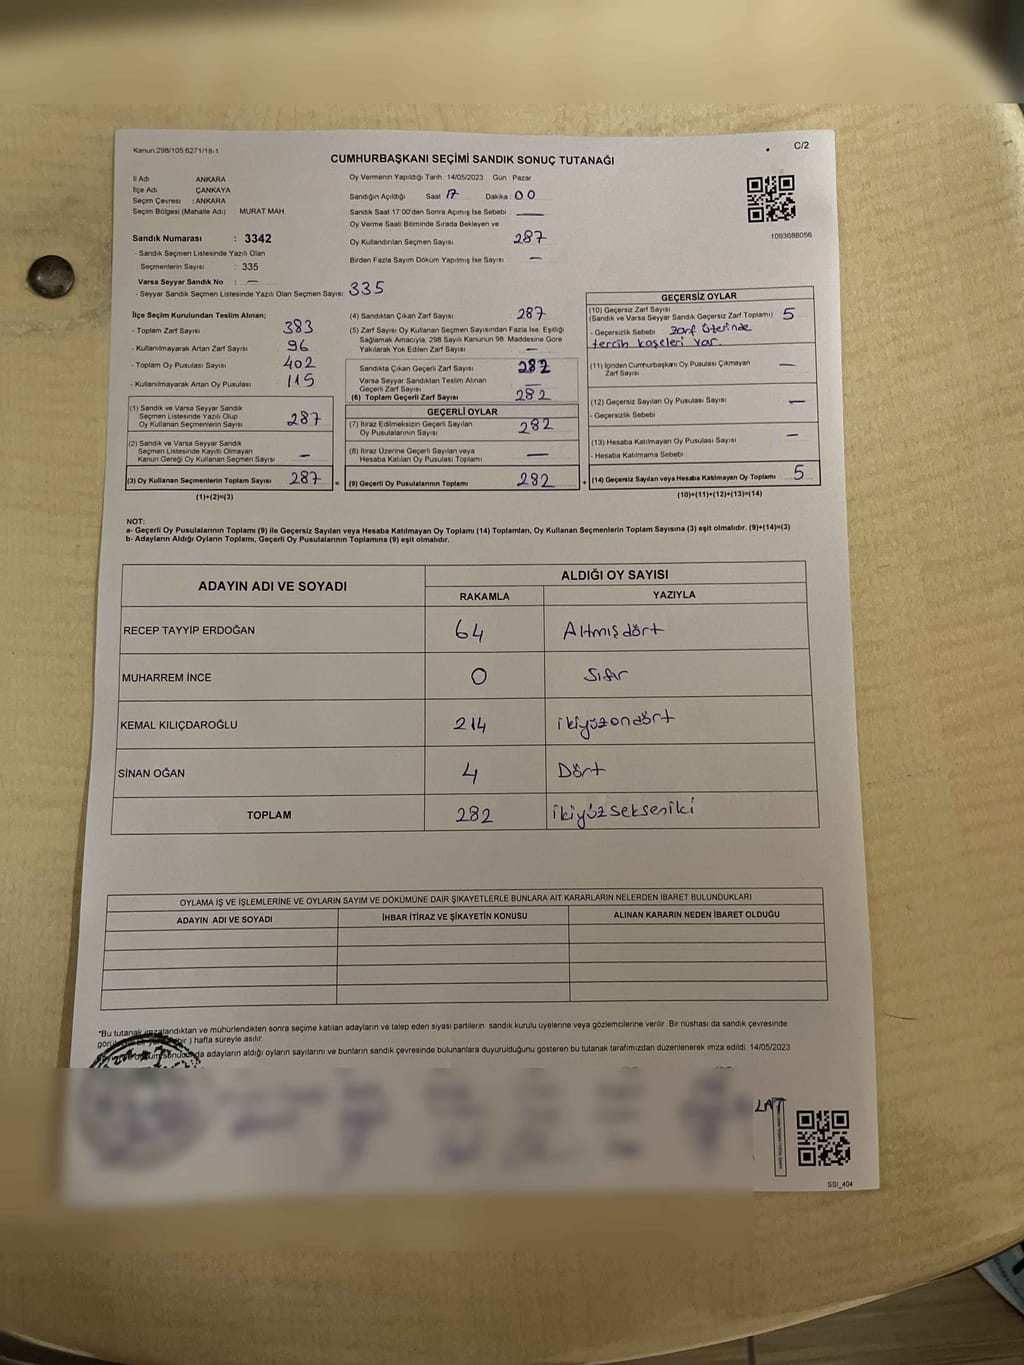 Kanun:298/105.6271/18-1
C/2
CUMHURBAŞKANI SEÇİMİ SANDIK SONUÇ TUTANAĞI
İl Adı ANKARA
İlçe Adı ÇANKAYA
Seçim Çevresi : ANKARA
Seçim Bölgesi (Mahalle Adı) MURAT MAH
Sandık Numarası : 3342
- Sandık Seçmen Listesinde Yazılı Olan
Seçmenlerin Sayısı : 335
Varsa Seyyar Sandık No : —
- Seyyar Sandık Seçmen Listesinde Yazılı Olan Seçmen Sayısı: 335
Oy Vermenin Yapıldığı Tarih : 14/05/2023 Gün : Pazar
Sandığın Açıldığı Saat 17 Dakika 00
Sandık Saat 17:00'den Sonra Açımış İse Sebebi : —
Oy Verme Saati Bitiminde Sırada Bekleyen ve
Oy Kullandırılan Seçmen Sayısı 287
Birden Fazla Sayım Döküm Yapılmış İse Sayısı —
1093688056
İlçe Seçim Kurulundan Teslim Alınan;
- Toplam Zarf Sayısı 383
- Kullanılmayarak Artan Zarf Sayısı 96
- Toplam Oy Pusulası Sayısı 402
- Kullanılmayarak Artan Oy Pusulası 115
(1) Sandık ve Varsa Seyyar Sandık
Seçmen Listesinde Yazılı Olup
Oy Kullanan Seçmenlerin Sayısı 287
(2) Sandık ve Varsa Seyyar Sandık
Seçmen Listesinde Kayıtlı Olmayan
Kanun Gereği Oy Kullanan Seçmen Sayısı —
(3) Oy Kullanan Seçmenlerin Toplam Sayısı 287 =
(1)+(2)=(3)
(4) Sandıktan Çıkan Zarf Sayısı 287
(5) Zarf Sayısı Oy Kullanan Seçmen Sayısından Fazla İse, Eşitliği
Sağlamak Amacıyla, 298 Sayılı Kanunun 98. Maddesine Göre
Yakılarak Yok Edilen Zarf Sayısı —
Sandıkta Çıkan Geçerli Zarf Sayısı 282
Varsa Seyyar Sandıktan Teslim Alınan
Geçerli Zarf Sayısı —
(6) Toplam Geçerli Zarf Sayısı 282
GEÇERLİ OYLAR
(7) İtiraz Edilmeksizin Geçerli Sayılan
Oy Pusulalarının Sayısı 282
(8) İtiraz Üzerine Geçerli Sayılan veya
Hesaba Katılan Oy Pusulası Toplamı —
(9) Geçerli Oy Pusulalarının Toplamı 282 +
GEÇERSİZ OYLAR
(10) Geçersiz Zarf Sayısı
(Sandık ve Varsa Seyyar Sandık Geçersiz Zarf Toplamı) 5
- Geçersizlik Sebebi Zarf üterinde
tercih kaşeleri var.
(11) İçinden Cumhurbaşkanı Oy Pusulası Çıkmayan
Zarf Sayısı —
(12) Geçersiz Sayılan Oy Pusulası Sayısı —
- Geçersizlik Sebebi
(13) Hesaba Katılmayan Oy Pusulası Sayısı —
- Hesaba Katılmama Sebebi
(14) Geçersiz Sayılan veya Hesaba Katılmayan Oy Toplamı 5
(10)+(11)+(12)+(13)=(14)
NOT:
a- Geçerli Oy Pusulalarının Toplamı (9) ile Geçersiz Sayılan veya Hesaba Katılmayan Oy Toplamı (14) Toplamları, Oy Kullanan Seçmenlerin Toplam Sayısına (3) eşit olmalıdır. (9)+(14)=(3)
b- Adayların Aldığı Oyların Toplamı, Geçerli Oy Pusulalarının Toplamına (9) eşit olmalıdır.
ADAYIN ADI VE SOYADI ALDIĞI OY SAYISI
RAKAMLA YAZIYLA
RECEP TAYYİP ERDOĞAN 64 Altmışdört
MUHARREM İNCE 0 Sıfır
KEMAL KILIÇDAROĞLU 214 ikiyüzondört
SİNAN OĞAN 4 Dört
TOPLAM 282 ikiyüzsekseniki
OYLAMA İŞ VE İŞLEMLERİNE VE OYLARIN SAYIM VE DÖKÜMÜNE DAİR ŞİKAYETLERLE BUNLARA AİT KARARLARIN NELERDEN İBARET BULUNDUKLARI
ADAYIN ADI VE SOYADI İHBAR İTİRAZ VE ŞİKAYETİN KONUSU ALINAN KARARIN NEDEN İBARET OLDUĞU
*Bu tutanak imzalandıktan ve mühürlendikten sonra seçime katılan adayların ve talep eden siyasi partilerin sandık kurulu üyelerine veya gözlemcilerine verilir. Bir nüshası da sandık çevresinde
) hafta süreyle asılır.
adayların aldığı oyların sayılarını ve bunların sandık çevresinde bulunanlara duyurulduğunu gösteren bu tutanak tarafımızdan düzenlenerek imza edildi. 14/05/2023
LAT
SSI_404